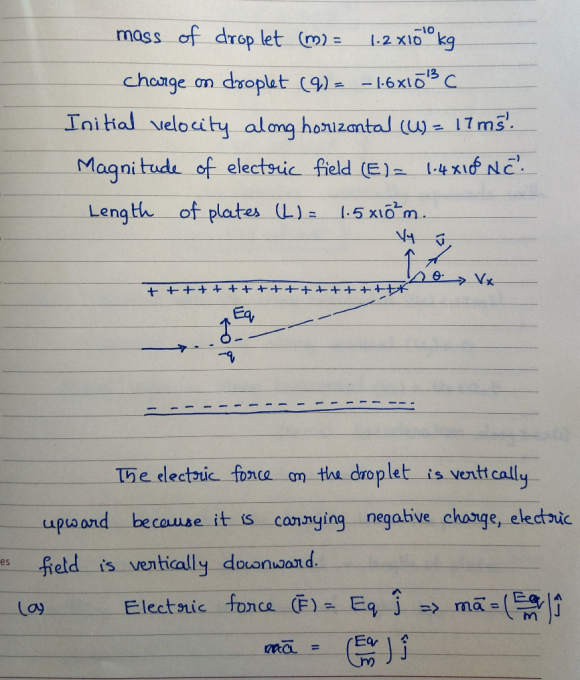 mass of droplet (m) = 1.2 x 10⁻¹⁰ kg
charge on droplet (q) = -1.6x10⁻¹³ C
Initial velocity along horizontal (U) = 17 ms⁻¹.
Magnitude of electric field (E) = 1.4 x 10⁶ NC⁻¹.
Length of plates (L) = 1.5 x 10⁻² m.
Vy v̄
θ. Vx
+ + + + + + + + + + + + + + + + + +
Eq
-q
- - - - - - - - - - - - - - -
The electric force on the droplet is vertically
upward because it is carrying negative charge, electric
es field is vertically downward.
(a) Electric force (F̄) = Eq ĵ => mā = (Eq/m) ĵ
mā = (Eq/m) ĵ